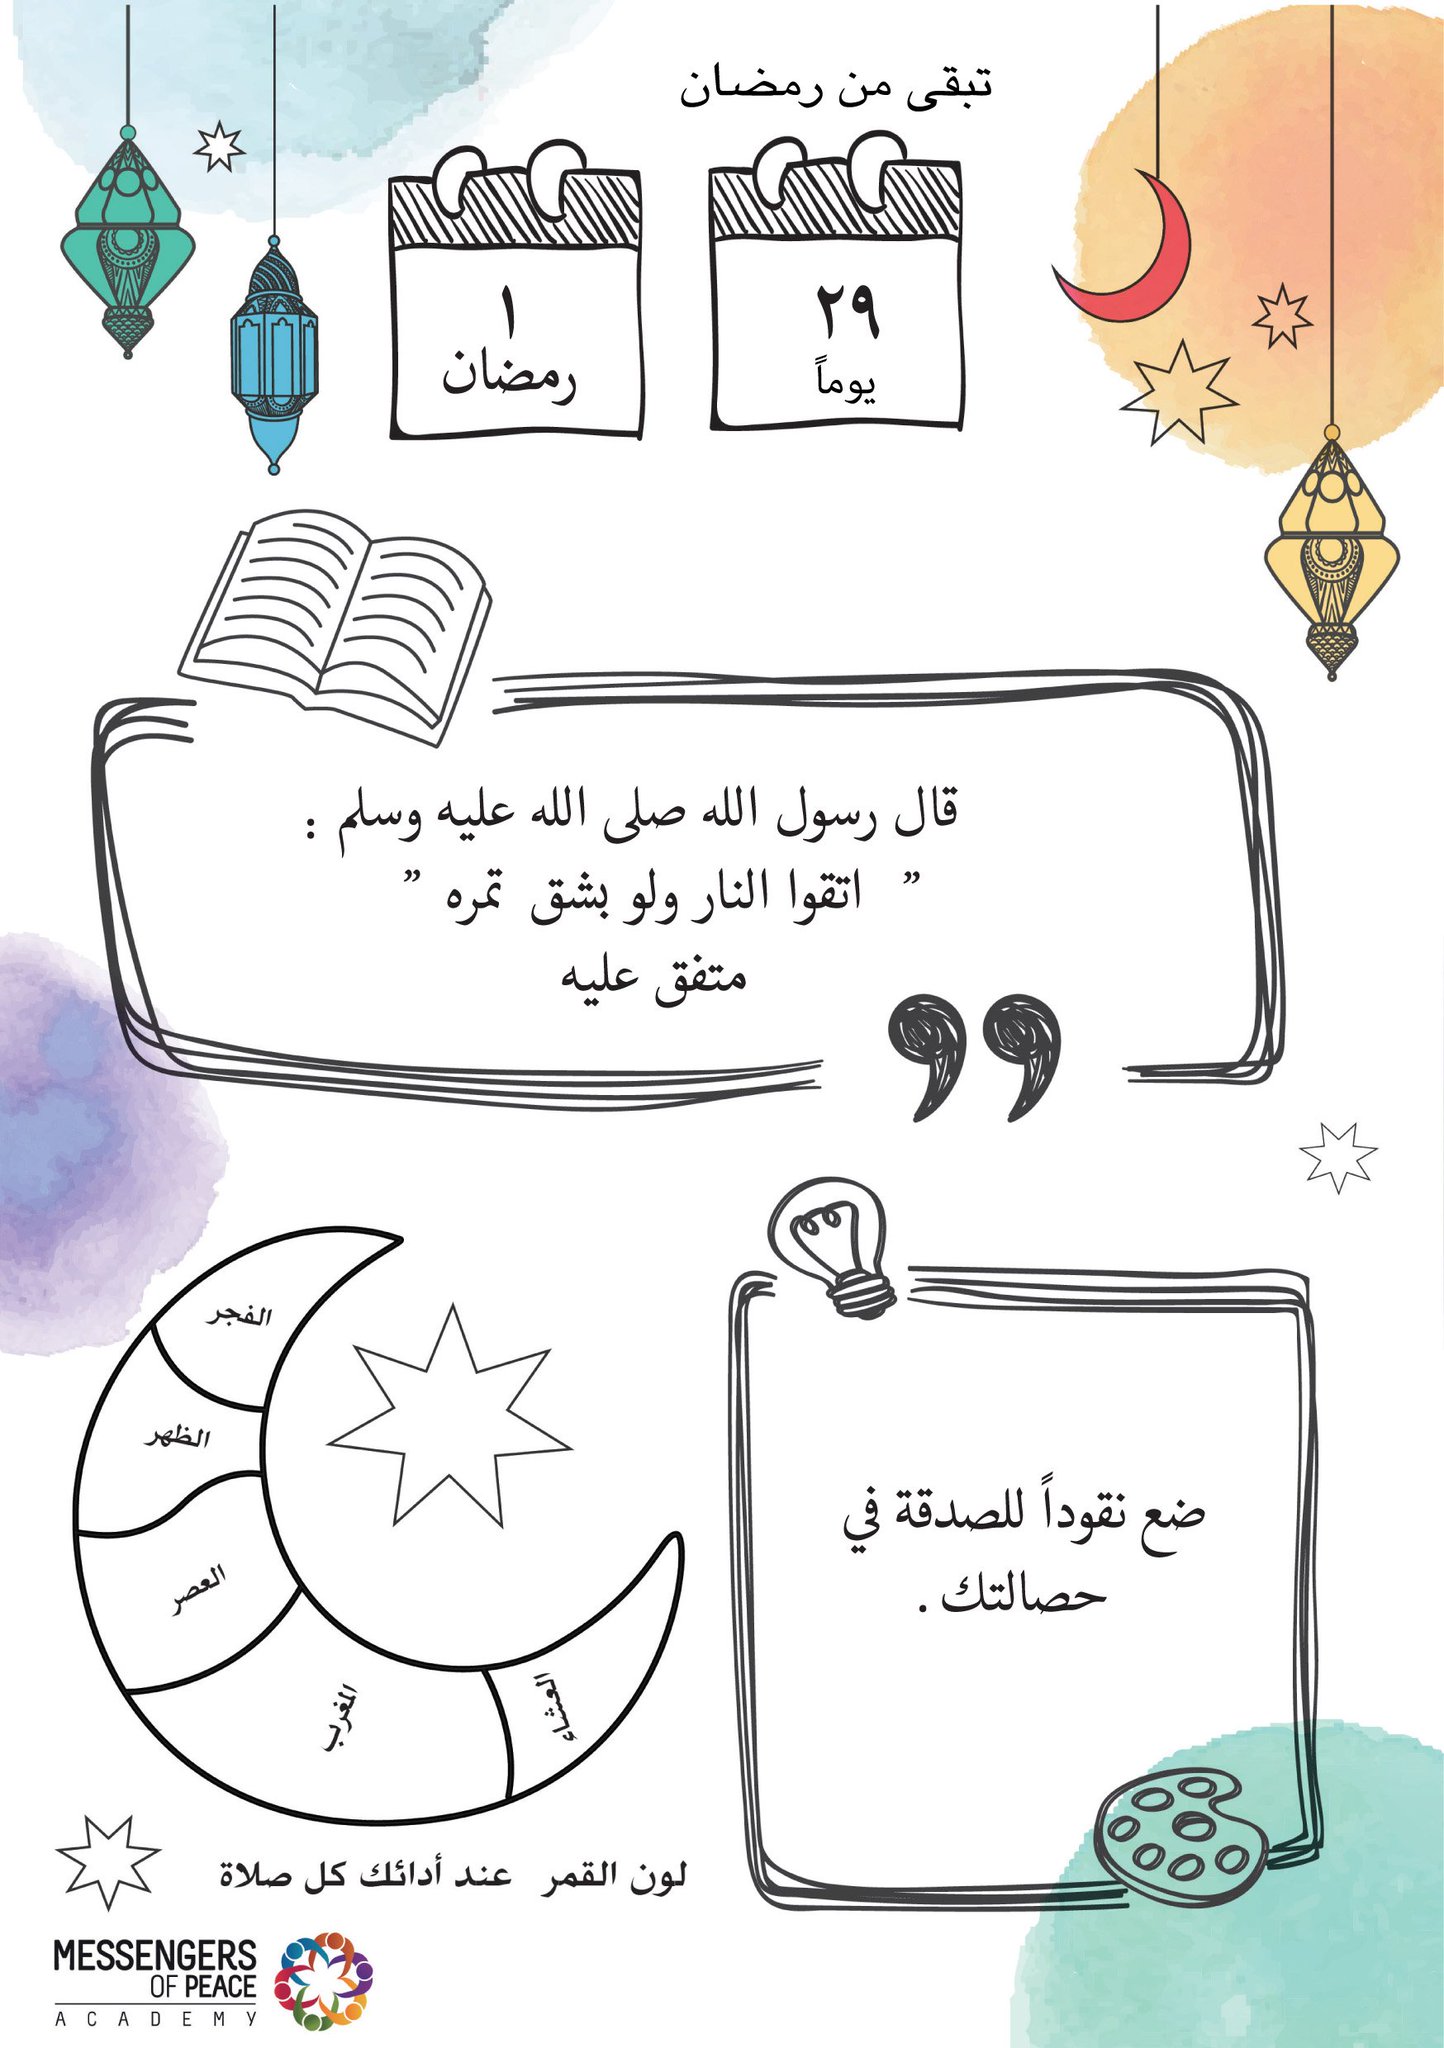 تبقى من رمضان
٢٩
يوماً
١
رمضان
قال رسول الله صلى الله عليه وسلم :
” اتقوا النار ولو بشق تمره ”
متفق عليه
الفجر
الظهر
العصر
المغرب
العشاء
لون القمر عند أدائك كل صلاة
ضع نقوداً للصدقة في
حصالتك .
MESSENGERS
OF PEACE
ACADEMY